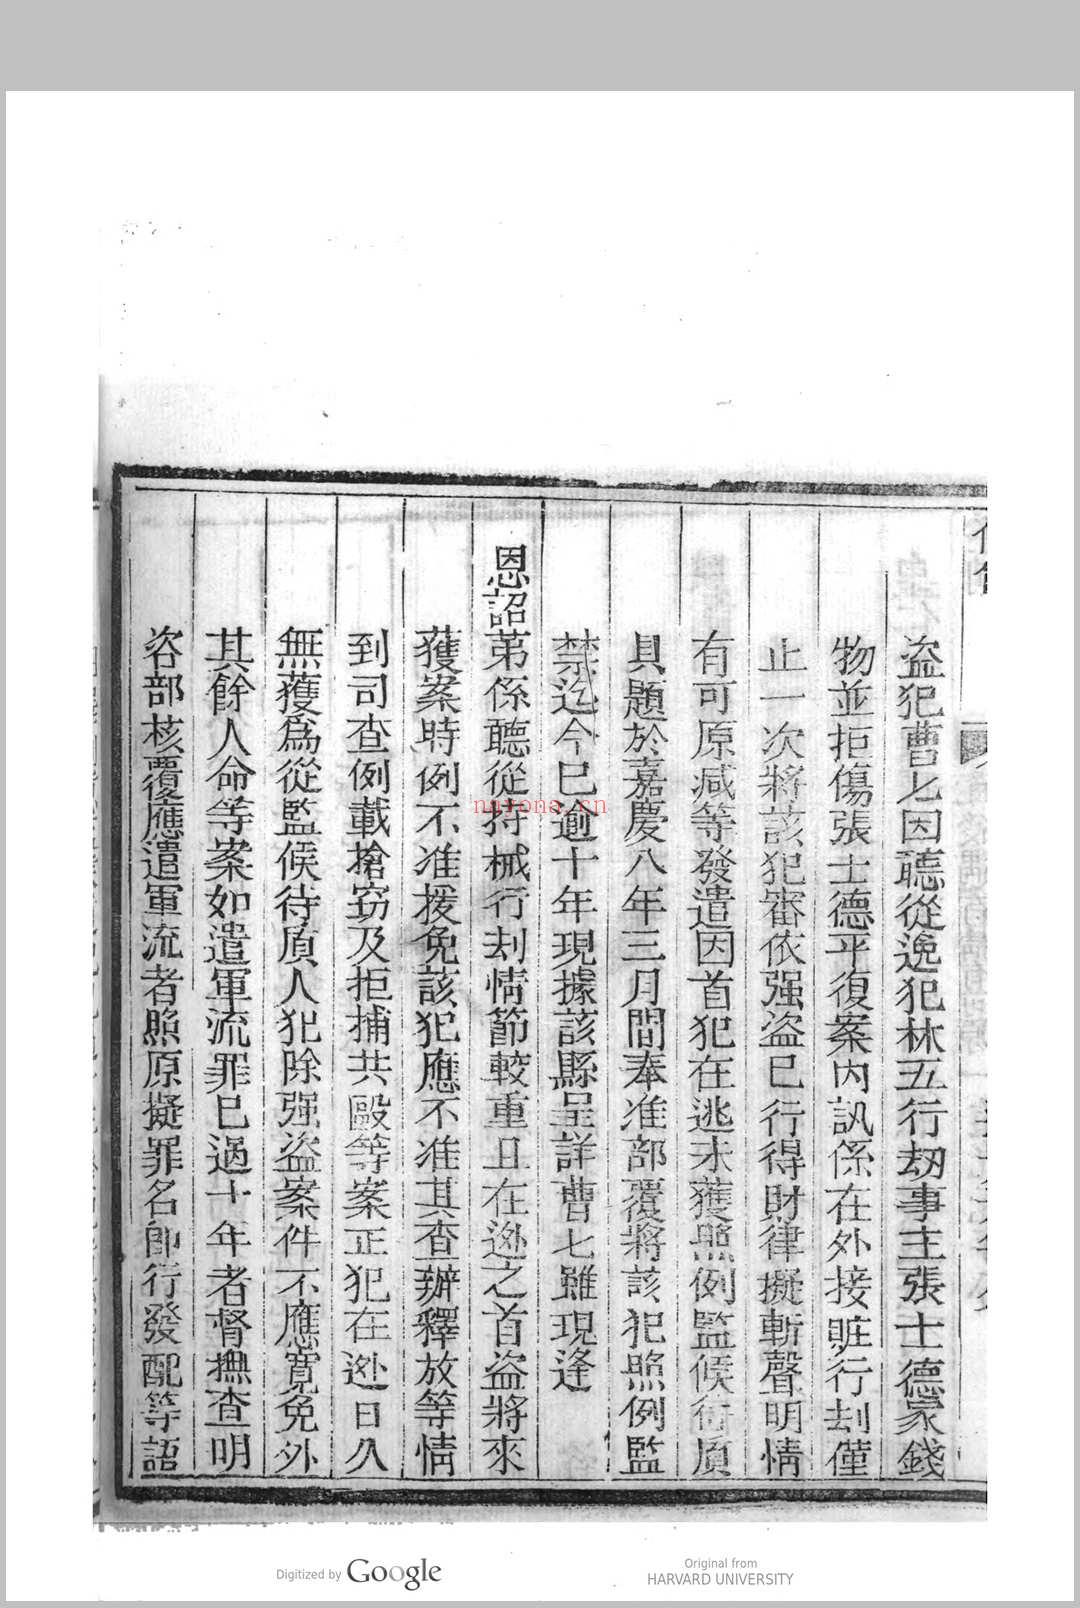 盜犯曹七因聽從逸犯林五行刼事主張士德家錢
物並拒傷張士德平復案內訊係在外接賍行刦僅
止一次將該犯審依强盜已行得財律擬斬聲明情
有可原减等發遣因首犯在逃未獲照例監候待質
具題於嘉慶八年三月間奉准部覆將該犯照例監
禁迄今巳逾十年現據該縣呈詳曹七雖現逢
恩詔第係聽從持械行刦情節較重且在逊之首盜將來
獲案時例不准援免該犯應不准其查辦釋放等情
到司查例載搶竊及拒捕共毆等案正犯在逊日久
無獲爲從監候待質人犯除强盜案件不應寬免外
其餘人命等案如遣軍流罪巳過十年者督撫查明
咨部核覆應遣軍流者照原擬罪名卽行發配等語
nayona.cn
Digitized by Google
Original from
HARVARD UNIVERSITY